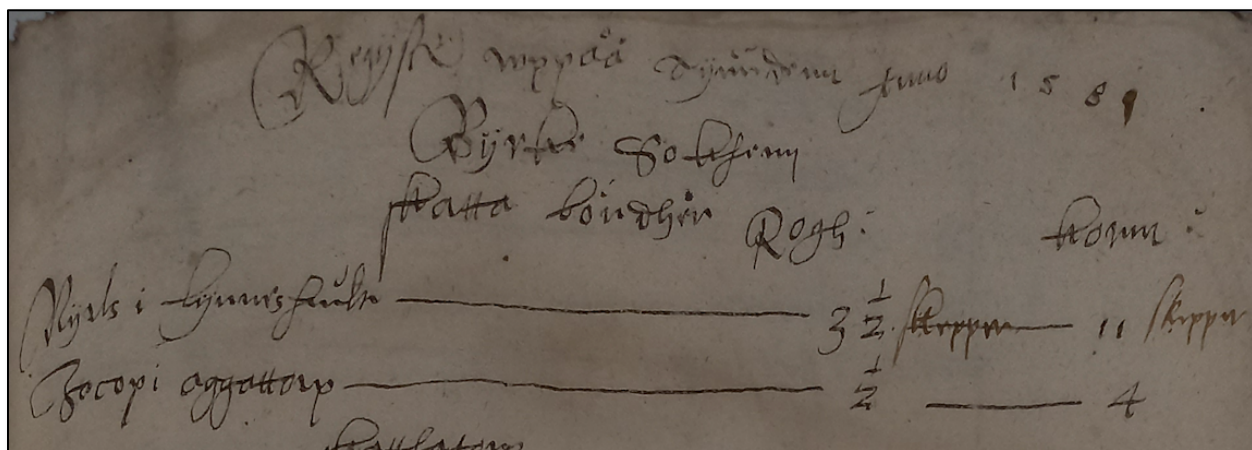 Registe wppåå tijunden Anno 1589
Byrke Sokhenn
skatta böndher Rogh: kornn:
Nyels i lynneshulte 3 1/2 skeppe 11 skeppe
Jocop i aggatorp 1/2 4